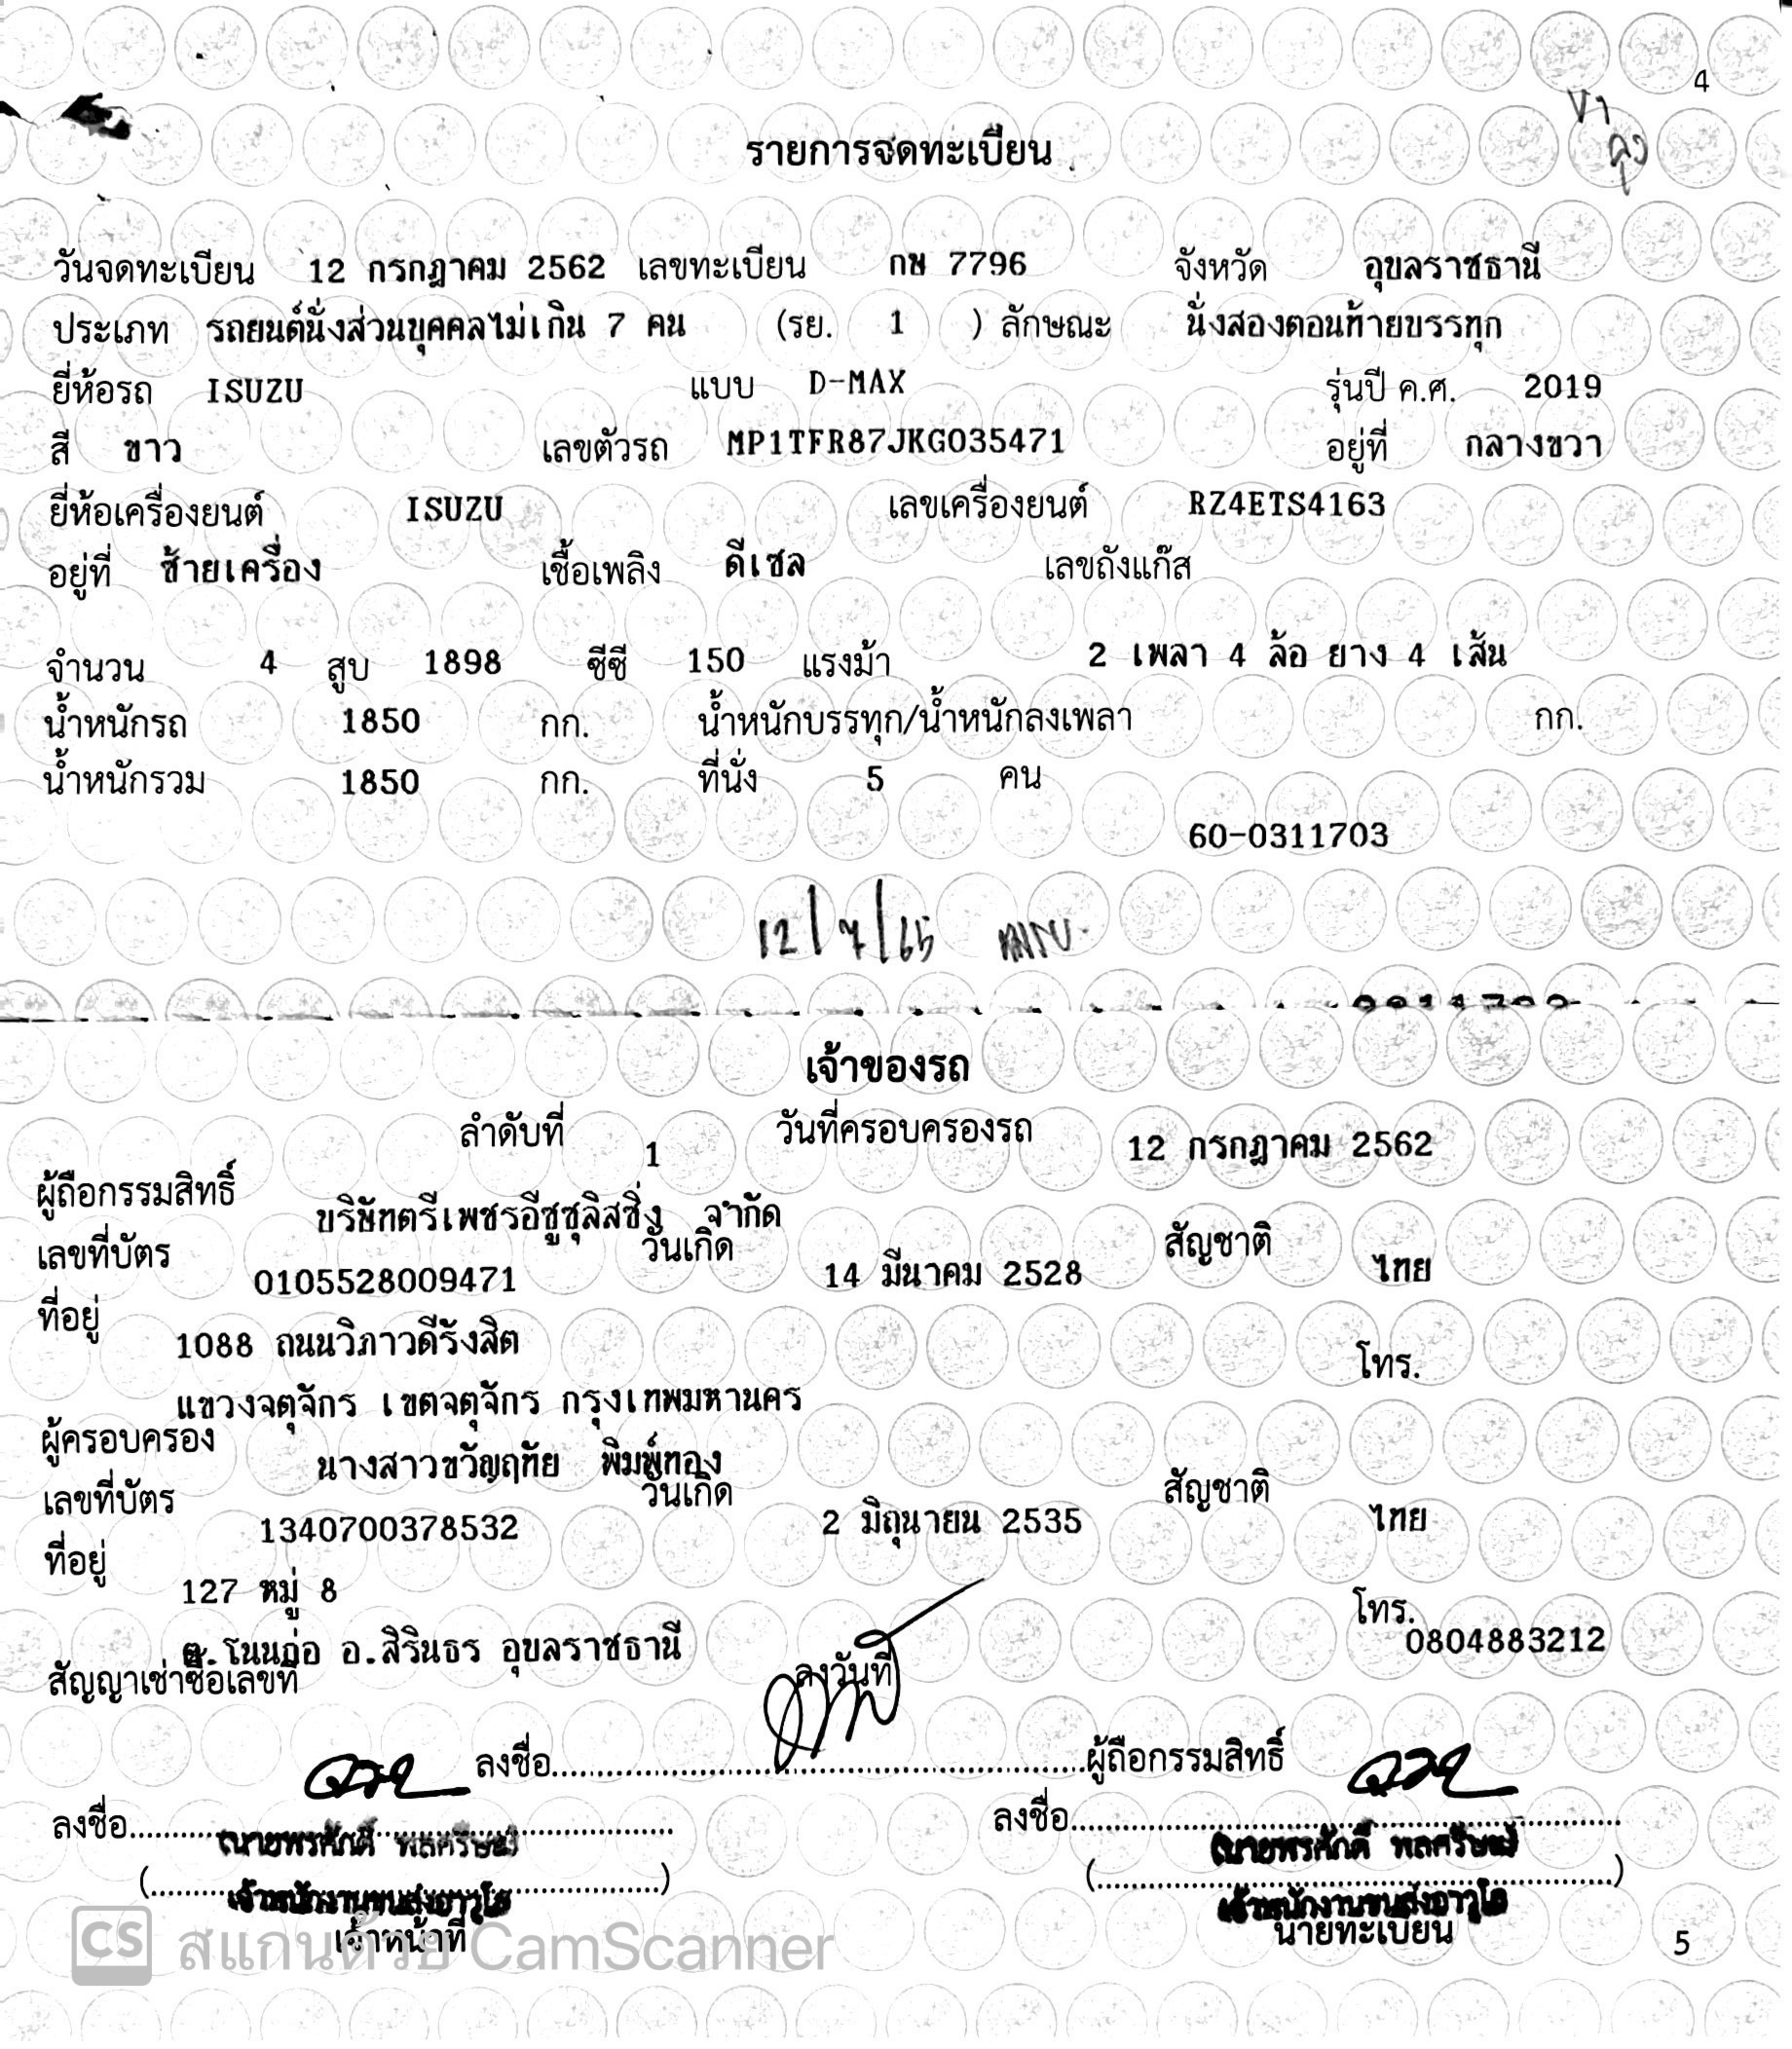 4
สูง
รายการจดทะเบียน
วันจดทะเบียน 12 กรกฎาคม 2562 เลขทะเบียน กษ 7796 จังหวัด อุบลราชธานี
ประเภท รถยนต์นั่งส่วนบุคคลไม่เกิน 7 คน (รย. 1 ) ลักษณะ นั่งสองตอนท้ายบรรทุก
ยี่ห้อรถ ISUZU แบบ D-MAX รุ่นปี ค.ศ. 2019
สี ขาว เลขตัวรถ MP1TFR87JKG035471 อยู่ที่ กลางขวา
ยี่ห้อเครื่องยนต์ ISUZU เลขเครื่องยนต์ RZ4ETS4163
อยู่ที่ ซ้ายเครื่อง เชื้อเพลิง ดีเซล เลขถังแก๊ส
จำนวน 4 สูบ 1898 ซีซี 150 แรงม้า 2 เพลา 4 ล้อ ยาง 4 เส้น
น้ำหนักรถ 1850 กก. น้ำหนักบรรทุก/น้ำหนักลงเพลา กก.
น้ำหนักรวม 1850 กก. ที่นั่ง 5 คน
60-0311703
12/7/65
เจ้าของรถ
ลำดับที่ 1 วันที่ครอบครองรถ 12 กรกฎาคม 2562
ผู้ถือกรรมสิทธิ์ บริษัทตรีเพชรอีซูซุลิสซิ่ง จำกัด
เลขที่บัตร 0105528009471 วันเกิด 14 มีนาคม 2528 สัญชาติ ไทย
ที่อยู่ 1088 ถนนวิภาวดีรังสิต โทร.
แขวงจตุจักร เขตจตุจักร กรุงเทพมหานคร
ผู้ครอบครอง นางสาวขวัญฤทัย พิมพ์ทอง
เลขที่บัตร 1340700378532 วันเกิด 2 มิถุนายน 2535 สัญชาติ ไทย
ที่อยู่ 127 หมู่ 8 โทร. 0804883212
ต.โนนก่อ อ.สิรินธร อุบลราชธานี
สัญญาเช่าซื้อเลขที่ ลงวันที่
ลงชื่อ ผู้ถือกรรมสิทธิ์
ลงชื่อ ลงชื่อ
(นายพรศักดิ์ พลศรีษะ) (นายพรศักดิ์ พลศรีษะ)
เจ้าพนักงานขนส่งอาวุโส เจ้าพนักงานขนส่งอาวุโส
เจ้าหน้าที่ นายทะเบียน
5
CS สแกนด้วย CamScanner